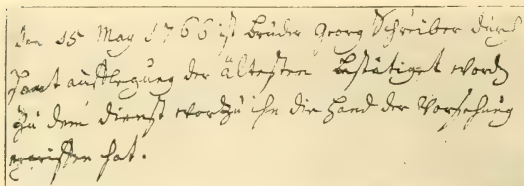 den 15 May 1766 ist bruder Georg Schreiber durch
hant aufflegung der ältesten bestätiget worden
zu dem dienst worzu ihn die hand der Vorsehung
ergriffen hat.